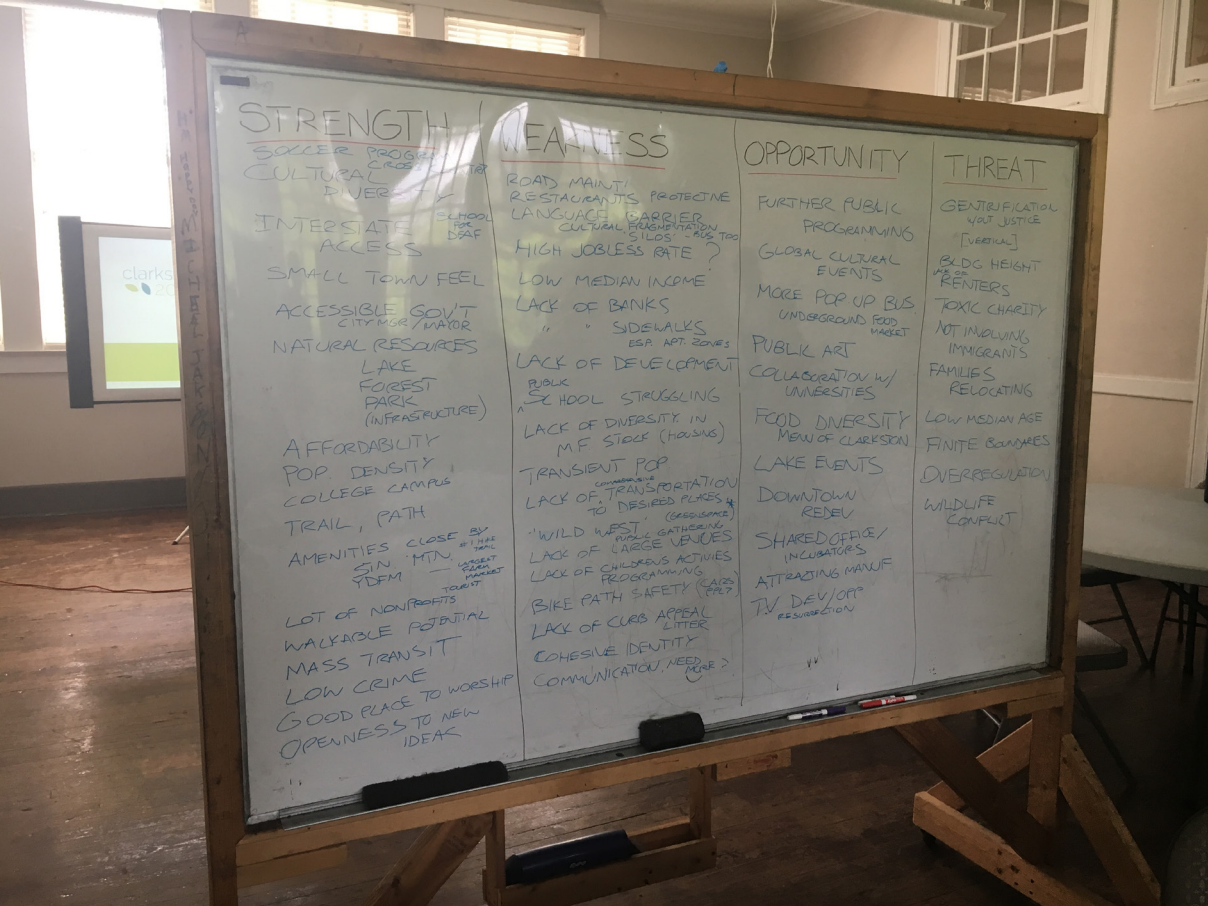 STRENGTH
SOCCER
CULTURAL
DIVERSITY
INTERSTATE
ACCESS
SCHOOL
FOR
DEAF
SMALL TOWN FEEL
ACCESSIBLE GOV'T
CITY MGR/MAYOR
NATURAL RESOURCES
LAKE
FOREST
PARK
(INFRASTRUCTURE)
AFFORDABILITY
POP DENSITY
COLLEGE CAMPUS
TRAIL, PATH
AMENITIES CLOSE BY
STN MTN
#1 HIKE
TRAIL
YDFM —
LARGEST
FARM
MARKET
TOURIST
LOT OF NONPROFITS
WALKABLE POTENTIAL
MASS TRANSIT
LOW CRIME
GOOD PLACE TO WORSHIP
OPENNESS TO NEW
IDEAS
WEAKNESS
ROAD MAINT.
RESTAURANTS PROTECTIVE
LANGUAGE BARRIER
CULTURAL FRAGMENTATION
SILOS - BUS TOO
HIGH JOBLESS RATE ?
LOW MEDIAN INCOME
LACK OF BANKS
" " SIDEWALKS
ESP. APT. ZONES
LACK OF DEVELOPMENT
PUBLIC
^SCHOOL STRUGGLING
LACK OF DIVERSITY IN
MF STOCK (HOUSING)
TRANSIENT POP
LACK OF TRANSPORTATION
TO DESIRED PLACES
"WILD WEST"
(GREENSPACE)
PUBLIC GATHERING
LACK OF LARGE VENUES
LACK OF CHILDRENS ACTIVIES
PROGRAMMING
BIKE PATH SAFETY
LACK OF CURB APPEAL
LITTER
COHESIVE IDENTITY
COMMUNICATION. NEED
MORE?
OPPORTUNITY
FURTHER PUBLIC
PROGRAMMING
GLOBAL CULTURAL
EVENTS
MORE POP-UP BUS.
UNDERGROUND FOOD
MARKET
PUBLIC ART
COLLABORATION W/
UNIVERSITIES
FOOD DIVERSITY
MENU OF CLARKSTON
LAKE EVENTS
DOWNTOWN
REDEV
SHARED OFFICE/
INCUBATORS
ATTRACTING MANUF
T.V DEV/OPP
RESURRECTION
THREAT
GENTRIFICATION
WOUT JUSTICE
[VERTICAL]
BLDG HEIGHT
RENTERS
TOXIC CHARITY
NOT INVOLVING
IMMIGRANTS
FAMILIES
RELOCATING
LOW MEDIAN AGE
FINITE BOUNDARES
OVERREGULATION
WILDLIFE
CONFLICT
clarks
20